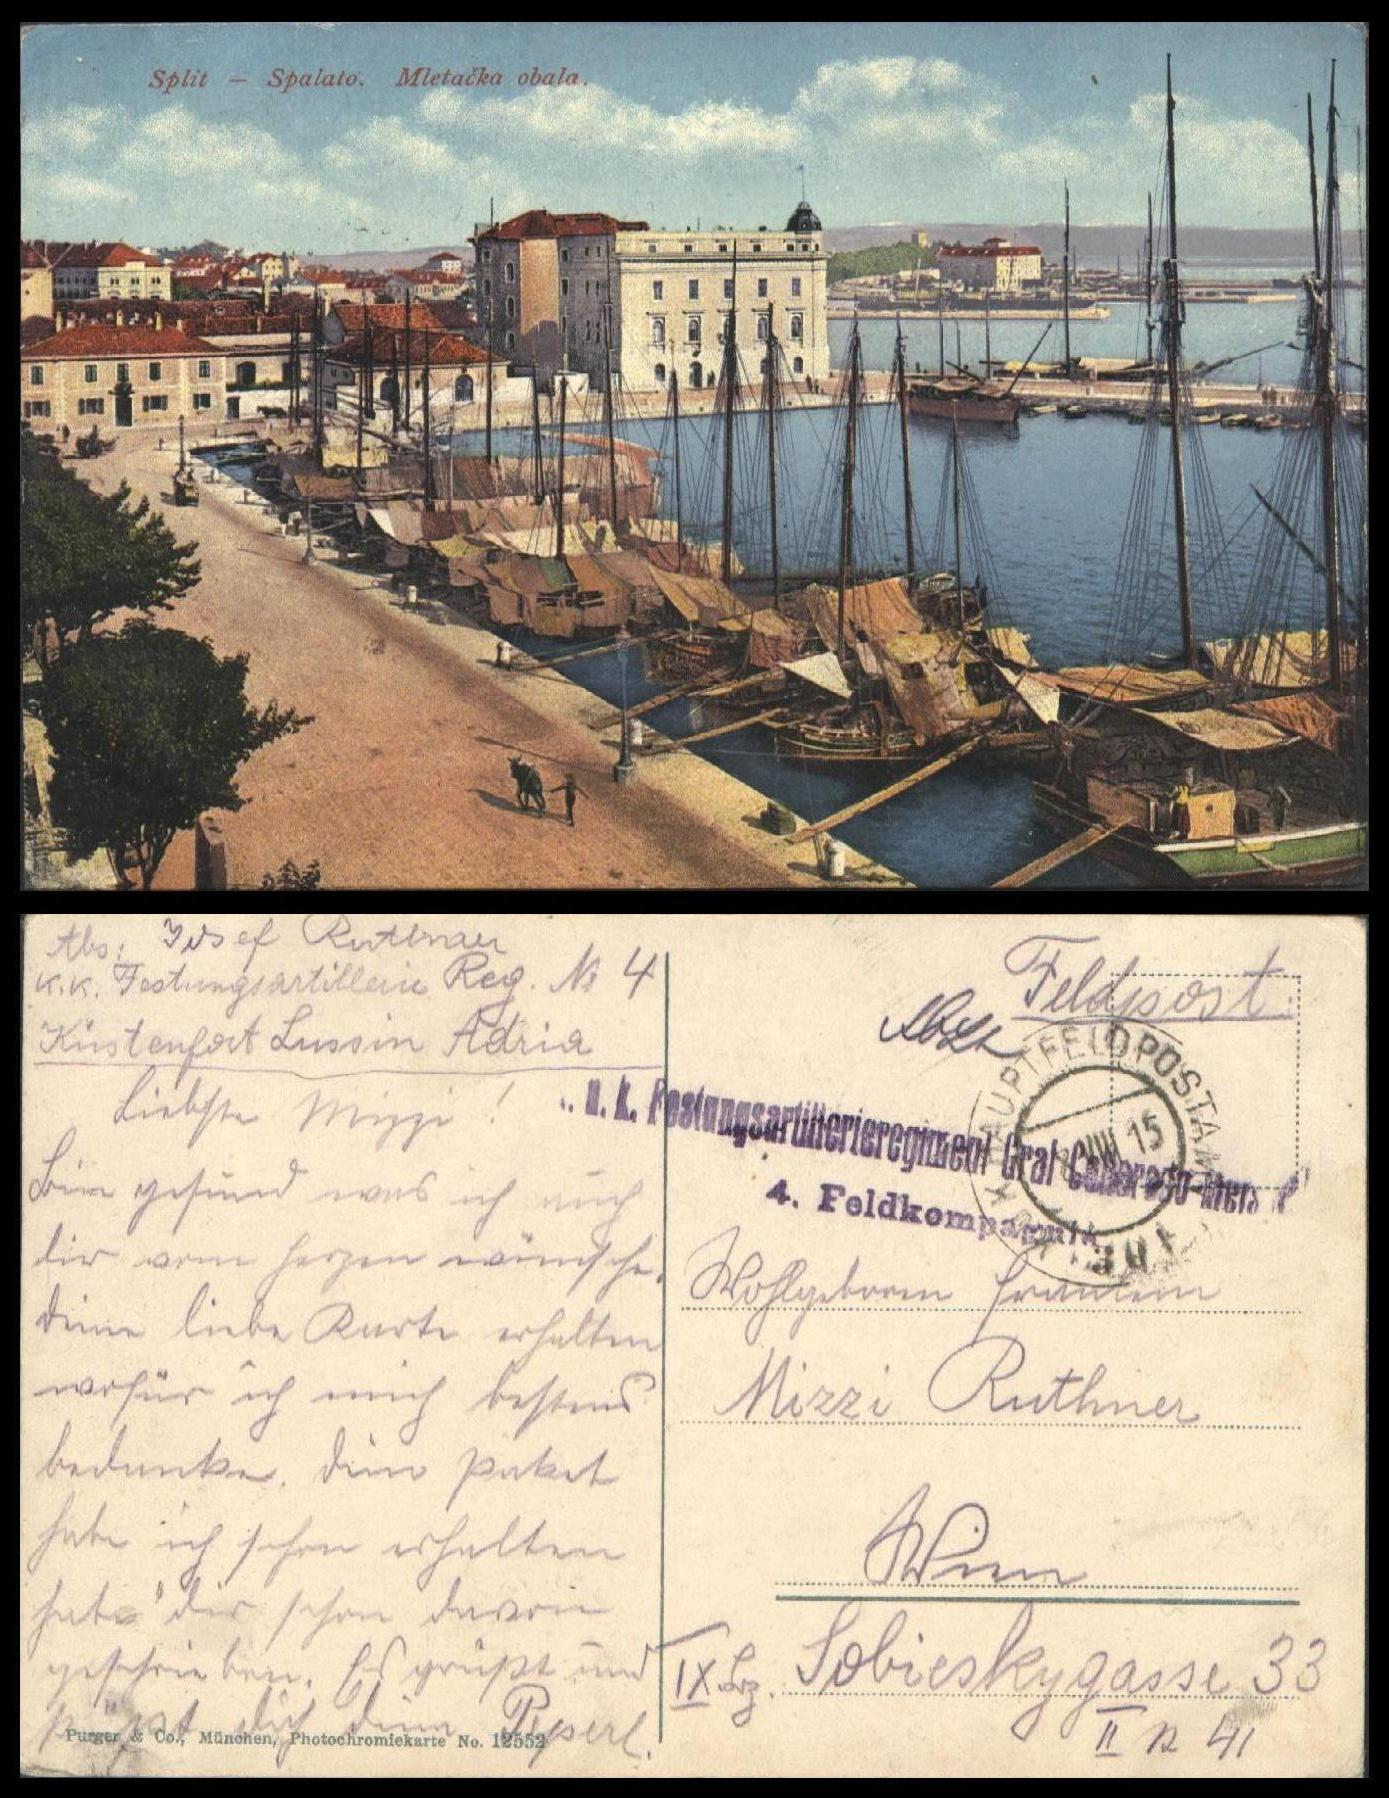 Split – Spalato. Mletačka obala.
Abs: Josef Ruthner
K.K. Festungsartillerie Reg. № 4
Küstenfort Lussin Adria
Liebste Mizzi!
Bin gesund was ich auch
dir vom Herzen wünsche.
deine liebe Karte erhalten
wofür ich mich bestens
bedanke. dein Paket
habe ich schon erhalten
habe dir schon davon
geschrieben. Es grüßt und
küßt dich dein Peperl.
Purger & Co., München, Photochromiekarte No. 12552
Feldpost.
K. u. K. HAUPTFELDPOSTAMT
VIII 15
u. k. Festungsartillerieregiment Graf Colloredo-Mels
4. Feldkompagnie
Wohlgeboren Fräulein
Mizzi Ruthner
Wien
IX. Bez. Sobieskygasse 33
II 41